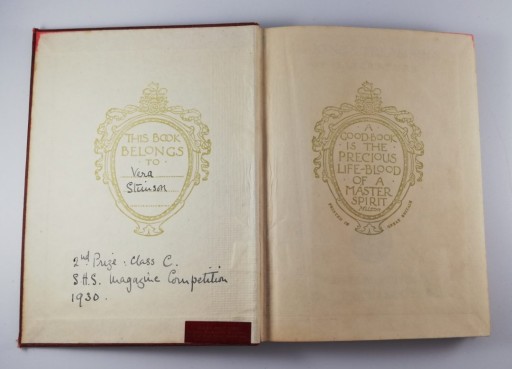 THIS BOOK
BELONGS
· TO ·
Vera
Stimson
2nd Prize · Class C.
S.H.S. Magazine Competition
1930.
A
GOOD BOOK
IS THE
PRECIOUS
LIFE-BLOOD
OF A
MASTER
SPIRIT
MILTON
PRINTED IN GREAT BRITAIN